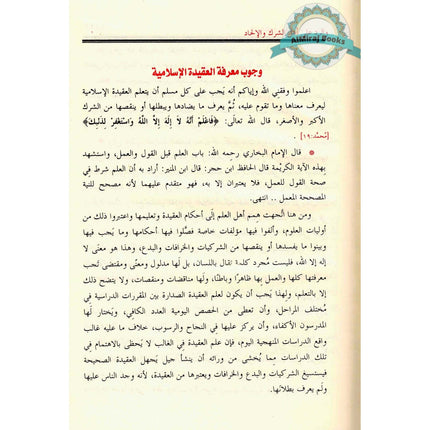 AlMiraj Books
لشرك والإلحاد
وجوب معرفة العقيدة الإسلامية
اعلموا وفقني الله وإياكم أنه يَجب على كل مسلم أن يتعلم العقيدة الإسلامية
ليعرف معناها وما تقوم عليه، ثُمَّ يعرف ما يضادها ويبطلها أو ينقصها من الشرك
الأكبر والأصغر، قال الله تعالَى: ﴿فَاعْلَمْ أَنَّهُ لَا إِلَهَ إِلَّا اللَّهُ وَاسْتَغْفِرْ لِذَنبِكَ﴾
[مُحمَّد:١٩].
* قال الإمام البخاري رحمه الله: باب العلم قبل القول والعمل، واستشهد
بِهذه الآية الكريْمة قال الحافظ ابن حجر: قال ابن المنير: أراد به أن العلم شرط في
صحة القول للعمل، فلا يعتبران إلا به، فهو متقدم عليهما لأنه مصحح للنية
المصححة للعمل .. انتهى.
ومن هنا اتَّجهت هِمم أهل العلم إلَى أحكام العقيدة وتعليمها واعتبروا ذلك من
أوليات العلوم، وألفوا فيها مؤلفات خاصة فصلُوا فيها أحكامها وما يَجب فيها
وبينوا ما يفسدها أو ينقصها من الشركيات والخرافات والبدع، وهذا هو معنَى لا
إله إلا الله، فليست مُجرد كلمة تقال باللسان، بل لَها مدلول ومعنًى ومقتضى تَجب
معرفتها كلها والعمل بِها ظاهرًا وباطنًا، ولَها مناقضات ومنقصات، ولا يتضح ذلك
إلا بالتعلم، ولِهذا يَجب أن يكون لعلم العقيدة الصدارة بين المقررات الدراسية في
مُختلف المراحل، وأن تعطى من الحصص اليومية العدد الكافي، ويختار لَها
المدرسون الأكفاء، وأن يركز عليها في النجاح والرسوب، خلاف ما عليه غالب
واقع الدراسات المنهجية اليوم، فإن علم العقيدة في الغالب لا يَحظى بالاهتمام في
تلك الدراسات مِما يُخشى من ورائه أن ينشأ جيل يَجهل العقيدة الصحيحة
فيستسيغ الشركيات والبدع والخرافات ويعتبرها من العقيدة، لأنه وجد الناس عليها
ولَم يعرف بطلانَها.